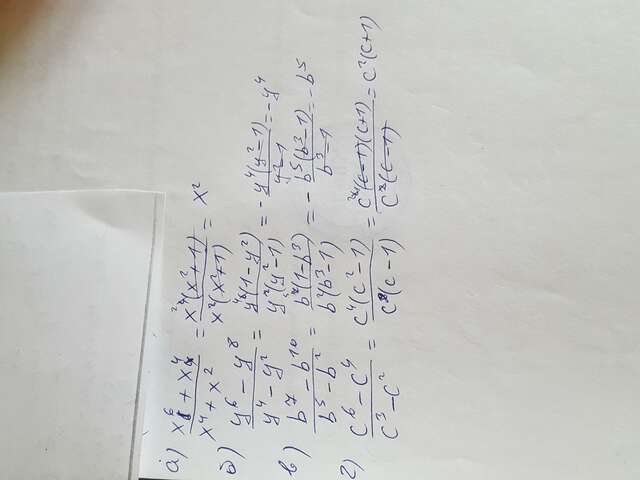 а) x⁶ + x⁴ / x⁴ + x² = x⁴(x² + 1) / x²(x² + 1) = x²
б) y⁶ − y⁸ / y⁴ − y² = y⁶(1 − y²) / y²(y² − 1) = − y⁴(y² − 1) / y² − 1 = −y⁴
в) b⁷ − b¹⁰ / b⁵ − b² = b⁷(1 − b³) / b²(b³ − 1) = − b⁵(b³ − 1) / b³ − 1 = −b⁵
г) c⁶ − c⁴ / c³ − c² = c⁴(c² − 1) / c²(c − 1) = c⁴(c − 1)(c + 1) / c²(c − 1) = c²(c + 1)